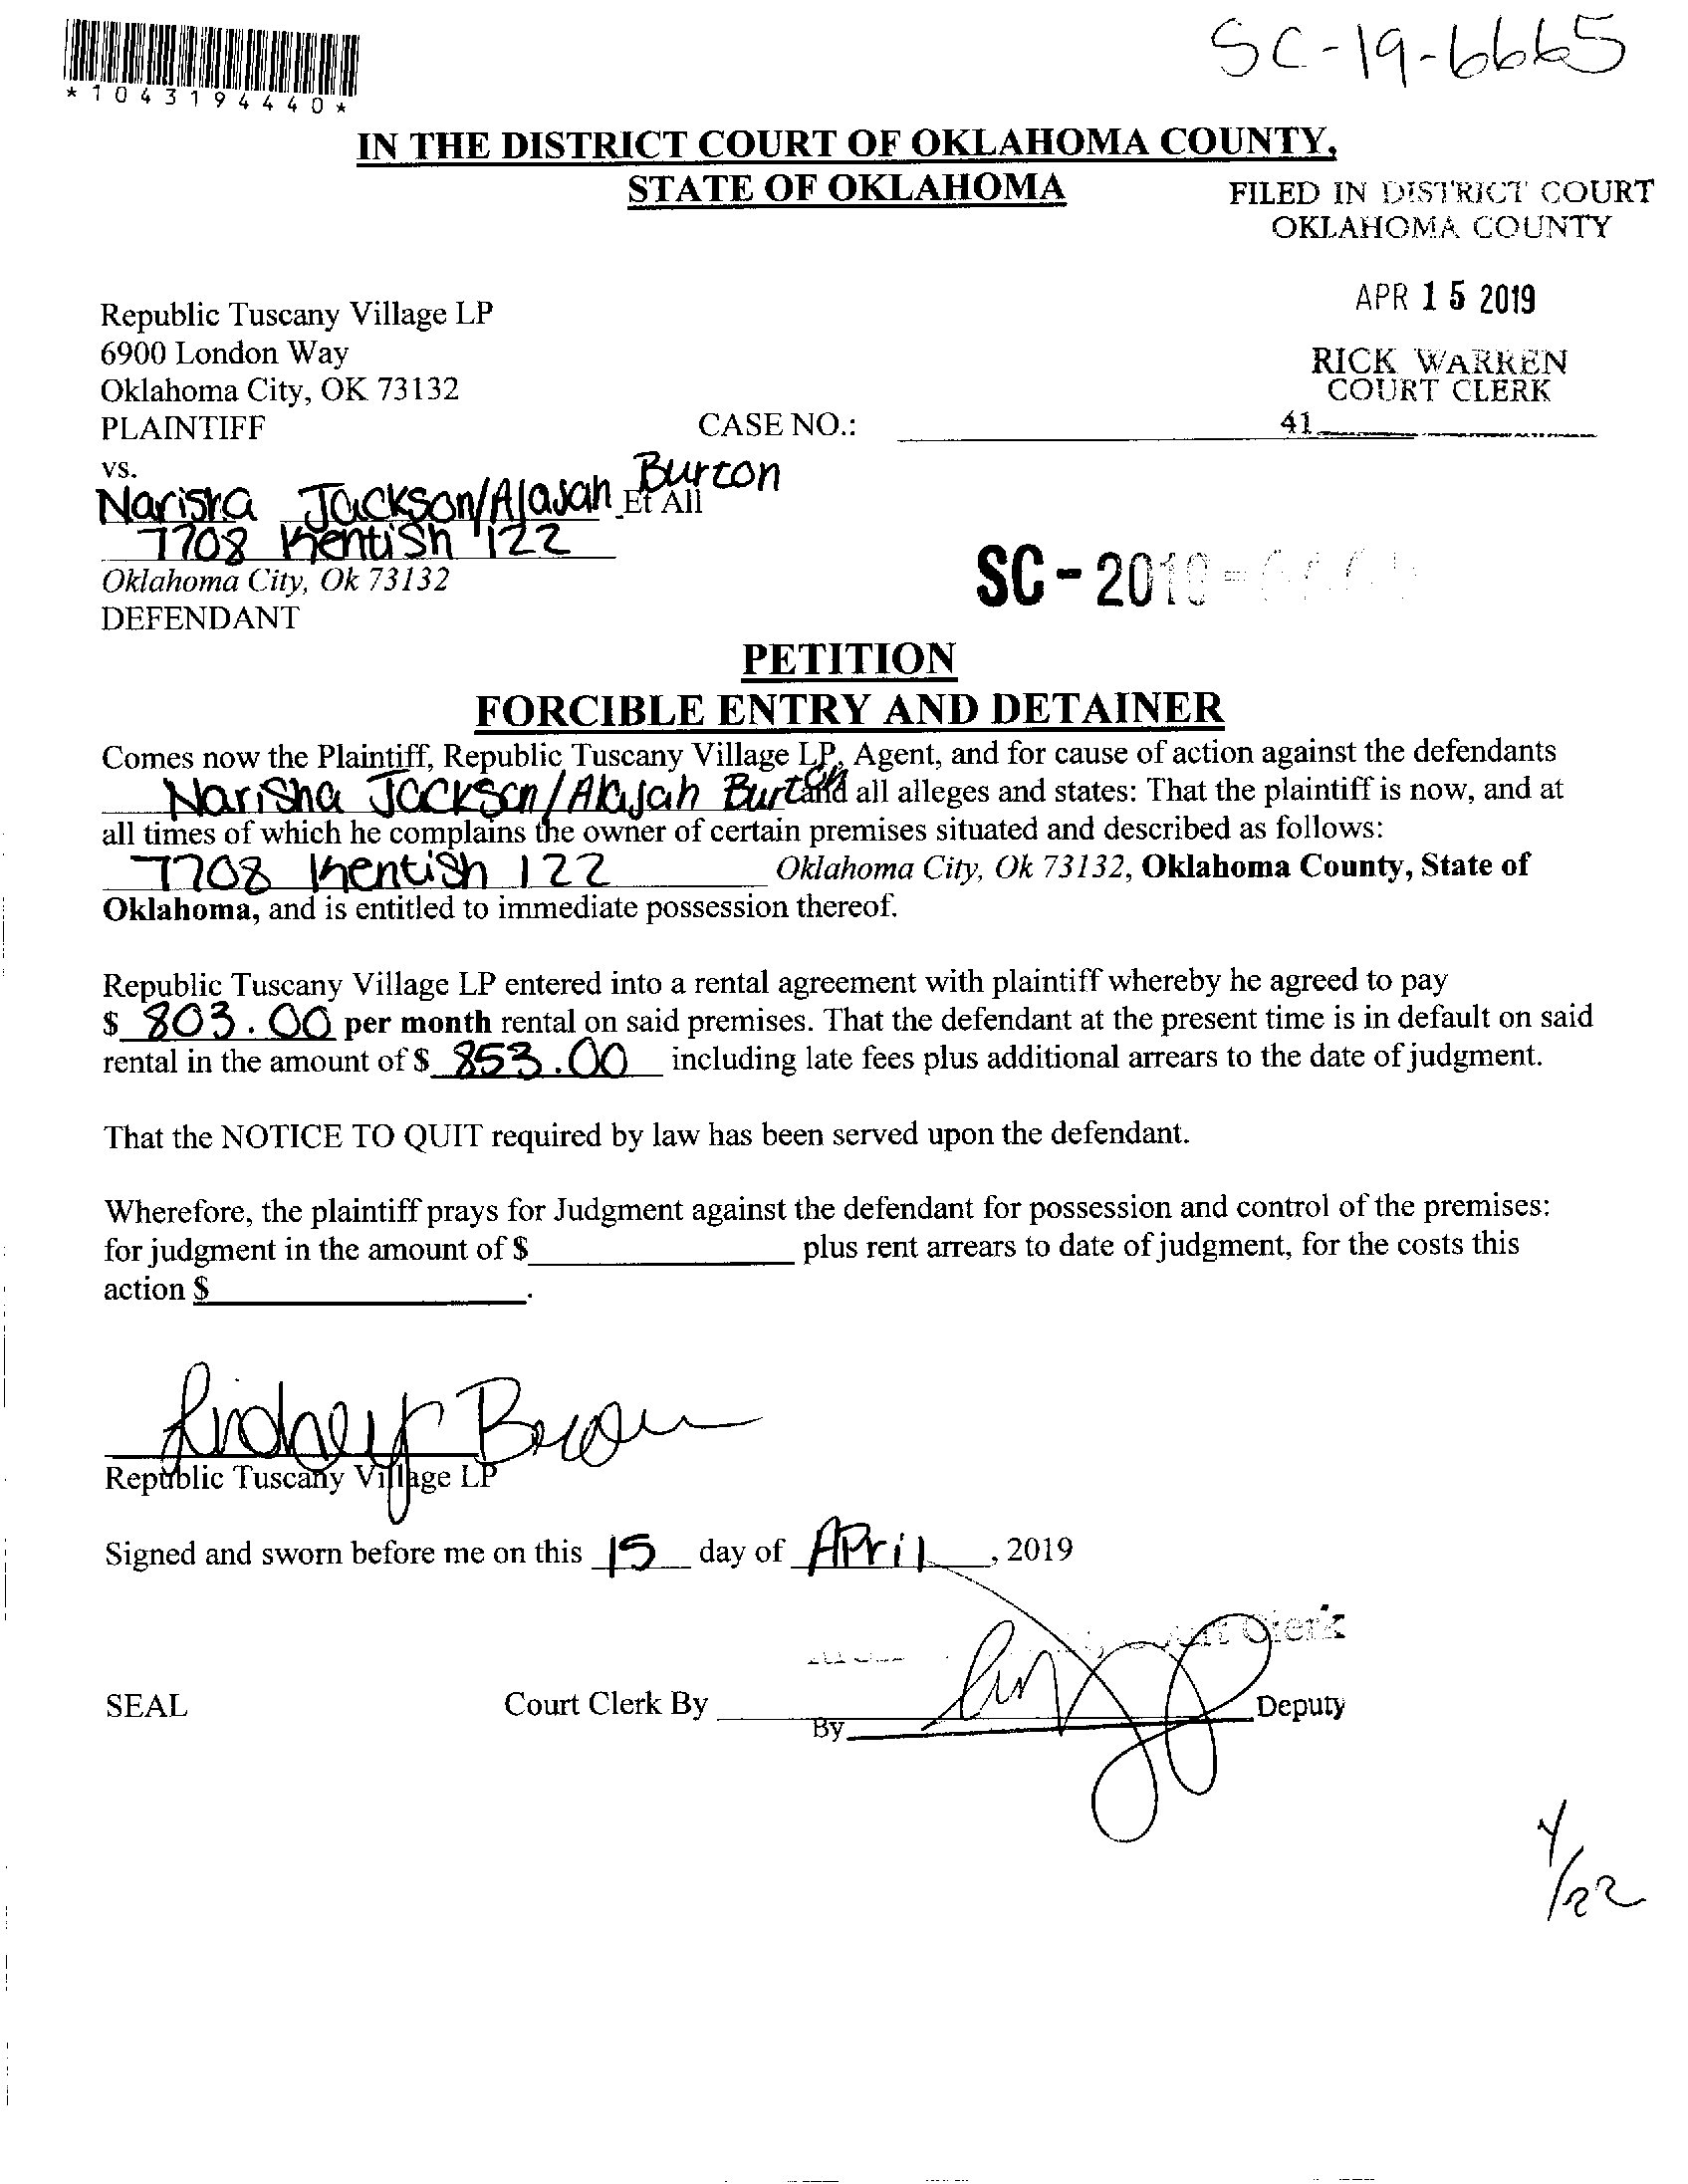 SC-19-6665
*1043194440*
IN THE DISTRICT COURT OF OKLAHOMA COUNTY,
STATE OF OKLAHOMA
FILED IN DISTRICT COURT
OKLAHOMA COUNTY
APR 15 2019
RICK WARREN
COURT CLERK
41
Republic Tuscany Village LP
6900 London Way
Oklahoma City, OK 73132
PLAINTIFF
CASE NO.:
vs.
Narisha Jackson/Alajah Burton Et All
7708 Kentish 122
Oklahoma City, Ok 73132
DEFENDANT
SC-2019-
PETITION
FORCIBLE ENTRY AND DETAINER
Comes now the Plaintiff, Republic Tuscany Village LP, Agent, and for cause of action against the defendants
Narisha Jackson/Alajah Burton and all alleges and states: That the plaintiff is now, and at
all times of which he complains the owner of certain premises situated and described as follows:
7708 Kentish 122 Oklahoma City, Ok 73132, Oklahoma County, State of
Oklahoma, and is entitled to immediate possession thereof.
Republic Tuscany Village LP entered into a rental agreement with plaintiff whereby he agreed to pay
$ 803.00 per month rental on said premises. That the defendant at the present time is in default on said
rental in the amount of $ 853.00 including late fees plus additional arrears to the date of judgment.
That the NOTICE TO QUIT required by law has been served upon the defendant.
Wherefore, the plaintiff prays for Judgment against the defendant for possession and control of the premises:
for judgment in the amount of $ plus rent arrears to date of judgment, for the costs this
action $ .
Republic Tuscany Village LP
Signed and sworn before me on this 15 day of April, 2019
Clerk
SEAL
Court Clerk By
By
Deputy
4/22